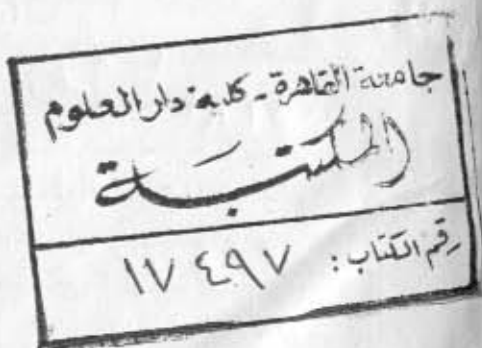 جامعة القاهرة - كلية دار العلوم
المكتبة
رقم الكتاب: ١٧٤٩٧